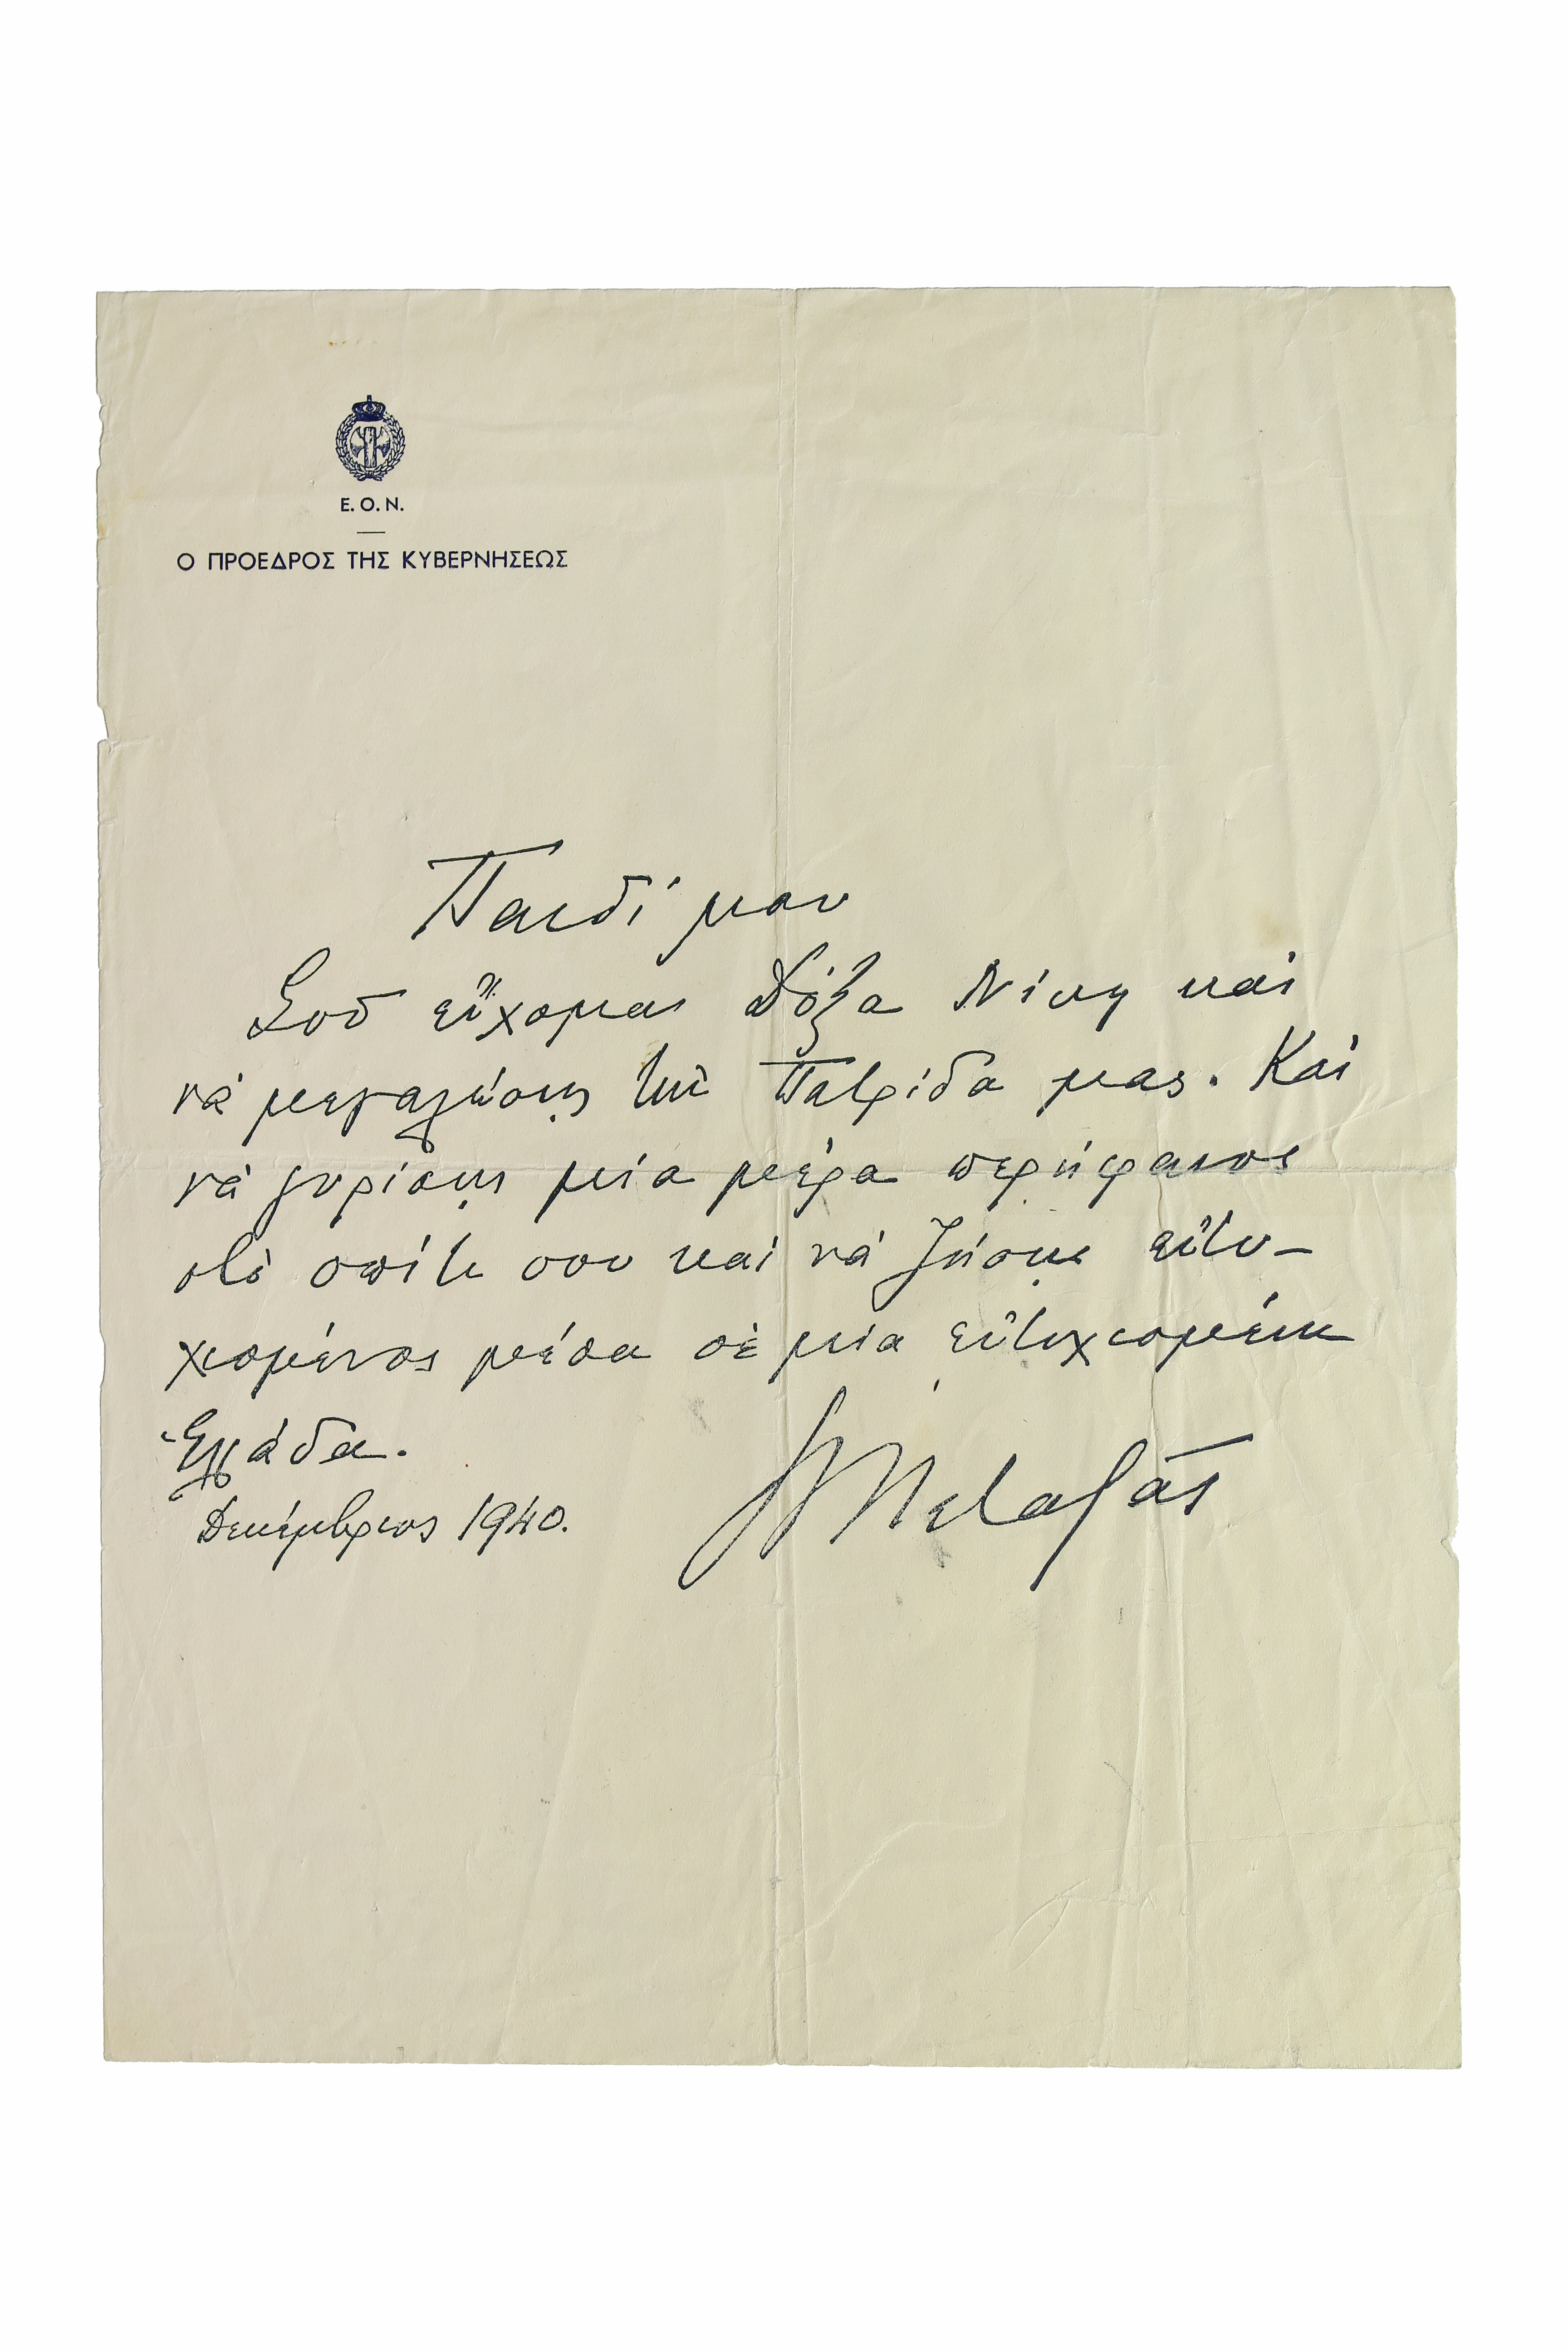 Ε. Ο. Ν.
Ο ΠΡΟΕΔΡΟΣ ΤΗΣ ΚΥΒΕΡΝΗΣΕΩΣ
Παιδί μου
Σοῦ εὔχομαι Δόξα Νίκη καὶ
νὰ μεγαλώσῃς τὴν Πατρίδα μας. Καὶ
νὰ γυρίσῃς μία μέρα περήφανος
στὸ σπίτι σου καὶ νὰ ζήσῃς εὐτυ-
χισμένος μέσα σὲ μία εὐτυχισμένη
Ἑλλάδα.
Δεκέμβριος 1940.
Ι Μεταξᾶς